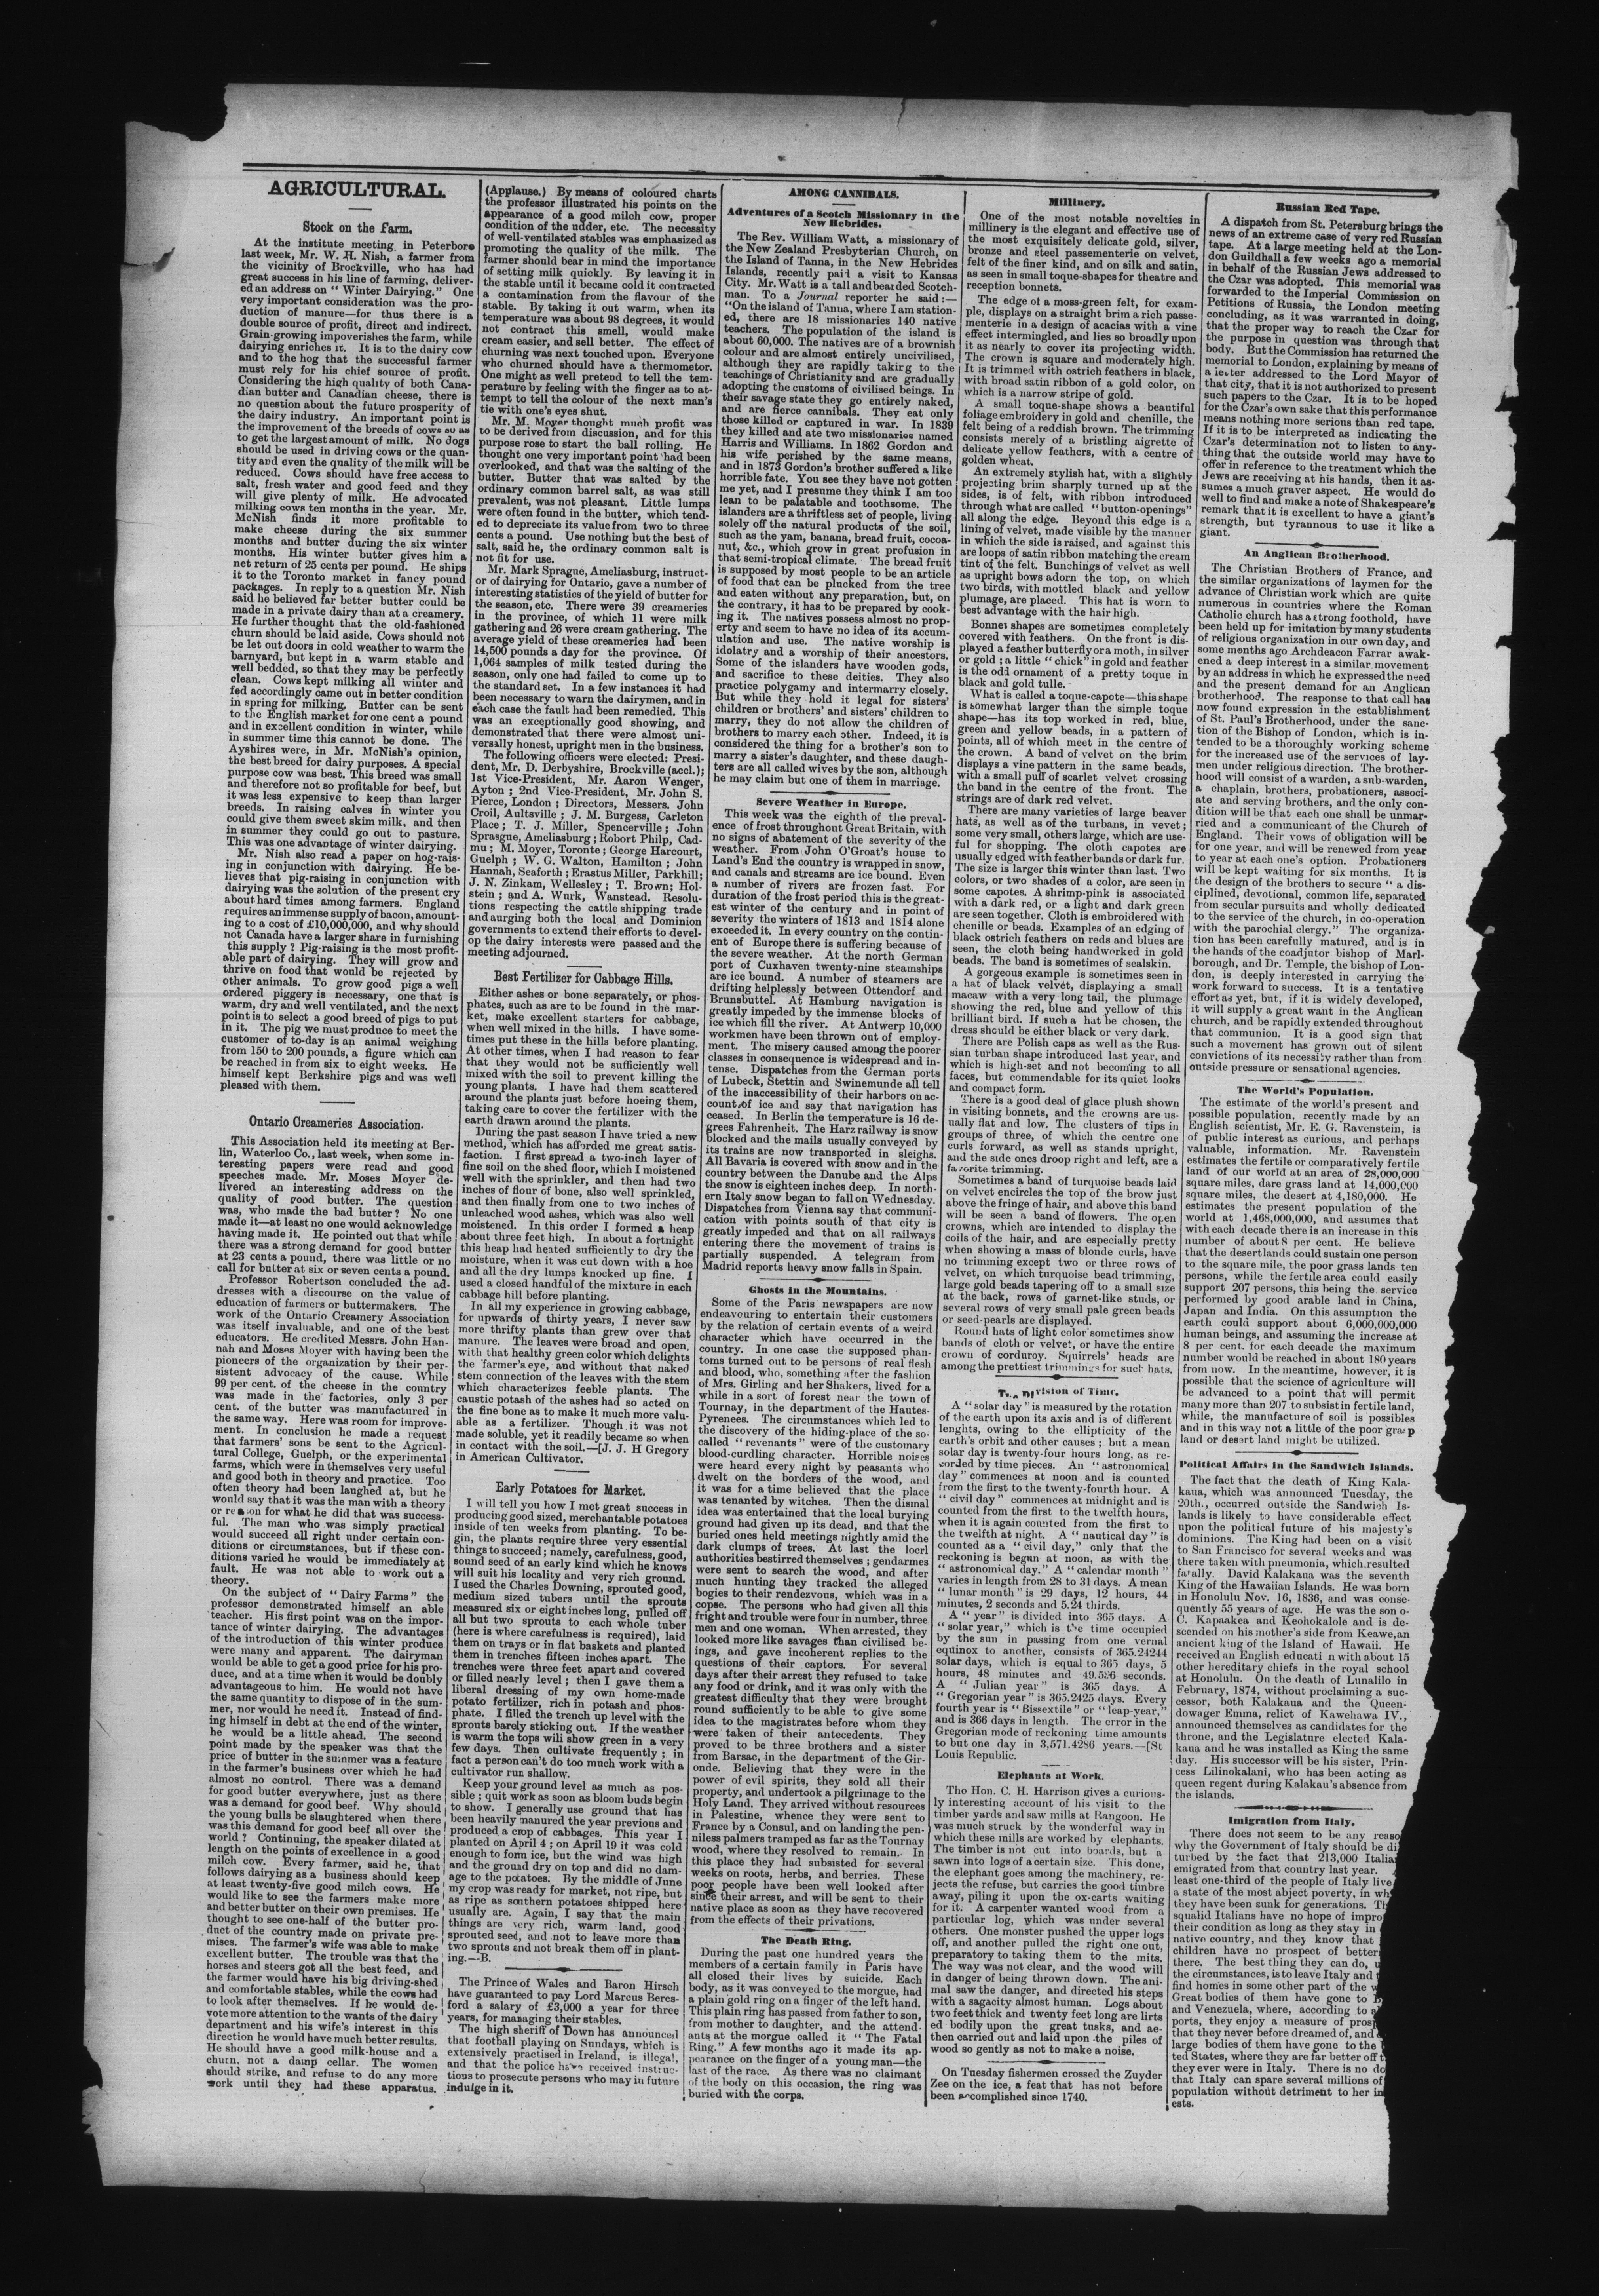 AGRICULTURAL.
Stock on the Farm.
At the institute meeting in Peterboro
last week, Mr. W. H. Nish, a farmer from
the vicinity of Brockville, who has had
great success in his line of farming, deliver-
ed an address on " Winter Dairying." One
very important consideration was the pro-
duction of manure—for thus there is a
double source of profit, direct and indirect.
Grain-growing impoverishes the farm, while
dairying enriches it. It is to the dairy cow
and to the hog that the successful farmer
must rely for his chief source of profit.
Considering the high quality of both Cana-
dian butter and Canadian cheese, there is
no question about the future prosperity of
the dairy industry. An important point is
the improvement of the breeds of cows so as
to get the largest amount of milk. No dogs
should be used in driving cows or the quan-
tity and even the quality of the milk will be
reduced. Cows should have free access to
salt, fresh water and good feed and they
will give plenty of milk. He advocated
milking cows ten months in the year. Mr.
McNish finds it more profitable to
make cheese during the six summer
months and butter during the six winter
months. His winter butter gives him a
net return of 25 cents per pound. He ships
it to the Toronto market in fancy pound
packages. In reply to a question Mr. Nish
said he believed far better butter could be
made in a private dairy than at a creamery.
He further thought that the old-fashioned
churn should be laid aside. Cows should not
be let out doors in cold weather to warm the
barnyard, but kept in a warm stable and
well bedded, so that they may be perfectly
clean. Cows kept milking all winter and
fed accordingly came out in better condition
in spring for milking. Butter can be sent
to the English market for one cent a pound
and in excellent condition in winter, while
in summer time this cannot be done. The
Ayshires were, in Mr. McNish's opinion,
the best breed for dairy purposes. A special
purpose cow was best. This breed was small
and therefore not so profitable for beef, but
it was less expensive to keep than larger
breeds. In raising calves in winter you
could give them sweet skim milk, and then
in summer they could go out to pasture.
This was one advantage of winter dairying.
Mr. Nish also read a paper on hog-rais-
ing in conjunction with dairying. He be-
lieves that pig-raising in conjunction with
dairying was the solution of the present cry
about hard times among farmers. England
requires an immense supply of bacon, amount-
ing to a cost of £10,000,000, and why should
not Canada have a larger share in furnishing
this supply ? Pig-raising is the most profit-
able part of dairying. They will grow and
thrive on food that would be rejected by
other animals. To grow good pigs a well
ordered piggery is necessary, one that is
warm, dry and well ventilated, and the next
point is to select a good breed of pigs to put
in it. The pig we must produce to meet the
customer of to-day is an animal weighing
from 150 to 200 pounds, a figure which can
be reached in from six to eight weeks. He
himself kept Berkshire pigs and was well
pleased with them.
Ontario Creameries Association.
This Association held its meeting at Ber-
lin, Waterloo Co., last week, when some in-
teresting papers were read and good
speeches made. Mr. Moses Moyer de-
livered an interesting address on the
quality of good butter. The question
was, who made the bad butter ? No one
made it—at least no one would acknowledge
having made it. He pointed out that while
there was a strong demand for good butter
at 23 cents a pound, there was little or no
call for butter at six or seven cents a pound.
Professor Robertson concluded the ad-
dresses with a discourse on the value of
education of farmers or buttermakers. The
work of the Ontario Creamery Association
was itself invaluable, and one of the best
educators. He credited Messrs. John Han-
nah and Moses Moyer with having been the
pioneers of the organization by their per-
sistent advocacy of the cause. While
99 per cent. of the cheese in the country
was made in the factories, only 3 per
cent. of the butter was manufactured in
the same way. Here was room for improve-
ment. In conclusion he made a request
that farmers' sons be sent to the Agricul-
tural College, Guelph, or the experimental
farms, which were in themselves very useful
and good both in theory and practice. Too
often theory had been laughed at, but he
would say that it was the man with a theory
or reason for what he did that was success-
ful. The man who was simply practical
would succeed all right under certain con-
ditions or circumstances, but if these con-
ditions varied he would be immediately at
fault. He was not able to work out a
theory.
On the subject of " Dairy Farms " the
professor demonstrated himself an able
teacher. His first point was on the impor-
tance of winter dairying. The advantages
of the introduction of this winter produce
were many and apparent. The dairyman
would be able to get a good price for his pro-
duce, and at a time when it would be doubly
advantageous to him. He would not have
the same quantity to dispose of in the sum-
mer, nor would he need it. Instead of find-
ing himself in debt at the end of the winter,
he would be a little ahead. The second
point made by the speaker was that the
price of butter in the summer was a feature
in the farmer's business over which he had
almost no control. There was a demand
for good butter everywhere, just as there
was a demand for good beef. Why should
the young bulls be slaughtered when there
was this demand for good beef all over the
world ? Continuing, the speaker dilated at
length on the points of excellence in a good
milch cow. Every farmer, said he, that
follows dairying as a business should keep
at least twenty-five good milch cows. He
would like to see the farmers make more
and better butter on their own premises. He
thought to see one-half of the butter pro-
duct of the country made on private pre-
mises. The farmer's wife was able to make
excellent butter. The trouble was that the
horses and steers got all the best feed, and
the farmer would have his big driving-shed
and comfortable stables, while the cows had
to look after themselves. If he would de-
vote more attention to the wants of the dairy
department and his wife's interest in this
direction he would have much better results.
He should have a good milk-house and a
churn, not a damp cellar. The women
should strike, and refuse to do any more
work until they had these apparatus.
(Applause.) By means of coloured charts
the professor illustrated his points on the
appearance of a good milch cow, proper
condition of the udder, etc. The necessity
of well-ventilated stables was emphasized as
promoting the quality of the milk. The
farmer should bear in mind the importance
of setting milk quickly. By leaving it in
the stable until it became cold it contracted
a contamination from the flavour of the
stable. By taking it out warm, when its
temperature was about 98 degrees, it would
not contract this smell, would make
cream easier, and sell better. The effect of
churning was next touched upon. Everyone
who churned should have a thermometor.
One might as well pretend to tell the tem-
perature by feeling with the finger as to at-
tempt to tell the colour of the next man's
tie with one's eyes shut.
Mr. M. Moyer thought much profit was
to be derived from discussion, and for this
purpose rose to start the ball rolling. He
thought one very important point had been
overlooked, and that was the salting of the
butter. Butter that was salted by the
ordinary common barrel salt, as was still
prevalent, was not pleasant. Little lumps
were often found in the butter, which tend-
ed to depreciate its value from two to three
cents a pound. Use nothing but the best of
salt, said he, the ordinary common salt is
not fit for use.
Mr. Mark Sprague, Ameliasburg, instruct-
or of dairying for Ontario, gave a number of
interesting statistics of the yield of butter for
the season, etc. There were 39 creameries
in the province, of which 11 were milk
gathering and 26 were cream gathering. The
average yield of these creameries had been
14,500 pounds a day for the province. Of
1,064 samples of milk tested during the
season, only one had failed to come up to
the standard set. In a few instances it had
been necessary to warn the dairymen, and in
each case the fault had been remedied. This
was an exceptionally good showing, and
demonstrated that there were almost uni-
versally honest, upright men in the business.
The following officers were elected: Presi-
dent, Mr. D. Derbyshire, Brockville (accl.);
1st Vice-President, Mr. Aaron Wenger,
Ayton ; 2nd Vice-President, Mr. John S.
Pierce, London ; Directors, Messers. John
Croil, Aultsville ; J. M. Burgess, Carleton
Place ; T. J. Miller, Spencerville ; John
Sprasgue, Ameliasburg ; Robort Philp, Cad-
mu ; M. Moyer, Toronte ; George Harcourt,
Guelph ; W. G. Walton, Hamilton ; John
Hannah, Seaforth ; Erastus Miller, Parkhill;
J. N. Zinkam, Wellesley ; T. Brown ; Hol-
stein ; and A. Wurk, Wanstead. Resolu-
tions respecting the cattle shipping trade
and aurging both the local and Dominion
governments to extend their efforts to devel-
op the dairy interests were passed and the
meeting adjourned.
Best Fertilizer for Cabbage Hills.
Either ashes or bone separately, or phos-
phates, such as are to be found in the mar-
ket, make excellent starters for cabbage,
when well mixed in the hills. I have some-
times put these in the hills before planting.
At other times, when I had reason to fear
that they would not be sufficiently well
mixed with the soil to prevent killing the
young plants. I have had them scattered
around the plants just before hoeing them,
taking care to cover the fertilizer with the
earth drawn around the plants.
During the past season I have tried a new
method, which has afforded me great satis-
faction. I first spread a two-inch layer of
fine soil on the shed floor, which I moistened
well with the sprinkler, and then had two
inches of flour of bone, also well sprinkled,
and then finally from one to two inches of
unleached wood ashes, which was also well
moistened. In this order I formed a heap
about three feet high. In about a fortnight
this heap had heated sufficiently to dry the
moisture, when it was cut down with a hoe
and all the dry lumps knocked up fine. I
used a closed handful of the mixture in each
cabbage hill before planting.
In all my experience in growing cabbage,
for upwards of thirty years, I never saw
more thrifty plants than grew over that
manure. The leaves were broad and open,
with that healthy green color which delights
the farmer's eye, and without that naked
stem connection of the leaves with the stem
which characterizes feeble plants. The
caustic potash of the ashes had so acted on
the fine bone as to make it much more valu-
able as a fertilizer. Though it was not
made soluble, yet it readily became so when
in contact with the soil.—[J. J. H Gregory
in American Cultivator.
Early Potatoes for Market.
I will tell you how I met great success in
producing good sized, merchantable potatoes
inside of ten weeks from planting. To be-
gin, the plants require three very essential
things to succeed ; namely, carefulness, good,
sound seed of an early kind which he knows
will suit his locality and very rich ground.
I used the Charles Downing, sprouted good,
medium sized tubers until the sprouts
measured six or eight inches long, pulled off
all but two sprouts to each whole tuber
(here is where carefulness is required), laid
them on trays or in flat baskets and planted
them in trenches fifteen inches apart. The
trenches were three feet apart and covered
or filled nearly level ; then I gave them a
liberal dressing of my own home-made
potato fertilizer, rich in potash and phos-
phate. I filled the trench up level with the
sprouts barely sticking out. If the weather
is warm the tops will show green in a very
few days. Then cultivate frequently ; in
fact a person can't do too much work with a
cultivator run shallow.
Keep your ground level as much as pos-
sible ; quit work as soon as bloom buds begin
to show. I generally use ground that has
been heavily manured the year previous and
produced a crop of cabbages. This year I
planted on April 4 ; on April 19 it was cold
enough to form ice, but the wind was high
and the ground dry on top and did no dam-
age to the potatoes. By the middle of June
my crop was ready for market, not ripe, but
as ripe as southern potatoes shipped here
usually are. Again, I say that the main
things are very rich, warm land, good
sprouted seed, and not to leave more than
two sprouts and not break them off in plant-
ing.—B.
The Prince of Wales and Baron Hirsch
have guaranteed to pay Lord Marcus Beres-
ford a salary of £3,000 a year for three
years, for managing their stables.
The high sheriff of Down has announced
that football playing on Sundays, which is
extensively practised in Ireland, is illegal,
and that the police have received instruc-
tions to prosecute persons who may in future
indulge in it.
AMONG CANNIBALS.
Adventures of a Scotch Missionary in the
New Hebrides.
The Rev. William Watt, a missionary of
the New Zealand Presbyterian Church, on
the Island of Tanna, in the New Hebrides
Islands, recently paid a visit to Kansas
City. Mr. Watt is a tall and bearded Scotch-
man. To a Journal reporter he said :—
"On the island of Tanna, where I am station-
ed, there are 18 missionaries 140 native
teachers. The population of the island is
about 60,000. The natives are of a brownish
colour and are almost entirely uncivilised,
although they are rapidly taking to the
teachings of Christianity and are gradually
adopting the customs of civilised beings. In
their savage state they go entirely naked,
and are fierce cannibals. They eat only
those killed or captured in war. In 1839
they killed and ate two missionaries named
Harris and Williams. In 1862 Gordon and
his wife perished by the same means,
and in 1873 Gordon's brother suffered a like
horrible fate. You see they have not gotten
me yet, and I presume they think I am too
lean to be palatable and toothsome. The
islanders are a thriftless set of people, living
solely off the natural products of the soil,
such as the yam, banana, bread fruit, cocoa-
nut, &c., which grow in great profusion in
that semi-tropical climate. The bread fruit
is supposed by most people to be an article
of food that can be plucked from the tree
and eaten without any preparation, but, on
the contrary, it has to be prepared by cook-
ing it. The natives possess almost no prop-
erty and seem to have no idea of its accum-
ulation and use. The native worship is
idolatry and a worship of their ancestors.
Some of the islanders have wooden gods,
and sacrifice to these deities. They also
practice polygamy and intermarry closely.
But while they hold it legal for sisters'
children or brothers' and sisters' children to
marry, they do not allow the children of
brothers to marry each other. Indeed, it is
considered the thing for a brother's son to
marry a sister's daughter, and these daugh-
ters are all called wives by the son, although
he may claim but one of them in marriage.
Severe Weather in Europe.
This week was the eighth of the preval-
ence of frost throughout Great Britain, with
no signs of abatement of the severity of the
weather. From John O'Groat's house to
Land's End the country is wrapped in snow,
and canals and streams are ice bound. Even
a number of rivers are frozen fast. For
duration of the frost period this is the great-
est winter of the century and in point of
severity the winters of 1813 and 1814 alone
exceeded it. In every country on the contin-
ent of Europe there is suffering because of
the severe weather. At the north German
port of Cuxhaven twenty-nine steamships
are ice bound. A number of steamers are
drifting helplessly between Ottendorf and
Brunsbuttel. At Hamburg navigation is
greatly impeded by the immense blocks of
ice which fill the river. At Antwerp 10,000
workmen have been thrown out of employ-
ment. The misery caused among the poorer
classes in consequence is widespread and in-
tense. Dispatches from the German ports
of Lubeck, Stettin and Swinemunde all tell
of the inaccessibility of their harbors on ac-
count of ice and say that navigation has
ceased. In Berlin the temperature is 16 de-
grees Fahrenheit. The Harz railway is snow
blocked and the mails usually conveyed by
its trains are now transported in sleighs.
All Bavaria is covered with snow and in the
country between the Danube and the Alps
the snow is eighteen inches deep. In north-
ern Italy snow began to fall on Wednesday.
Dispatches from Vienna say that communi-
cation with points south of that city is
greatly impeded and that on all railways
entering there the movement of trains is
partially suspended. A telegram from
Madrid reports heavy snow falls in Spain.
Ghosts in the Mountains.
Some of the Paris newspapers are now
endeavouring to entertain their customers
by the relation of certain events of a weird
character which have occurred in the
country. In one case the supposed phan-
toms turned out to be persons of real flesh
and blood, who, something after the fashion
of Mrs. Girling and her Shakers, lived for a
while in a sort of forest near the town of
Tournay, in the department of the Hautes-
Pyrenees. The circumstances which led to
the discovery of the hiding-place of the so-
called " revenants " were of the customary
blood-curdling character. Horrible noises
were heard every night by peasants who
dwelt on the borders of the wood, and
it was for a time believed that the place
was tenanted by witches. Then the dismal
idea was entertained that the local burying
ground had given up its dead, and that the
buried ones held meetings nightly amid the
dark clumps of trees. At last the locrl
authorities bestirred themselves ; gendarmes
were sent to search the wood, and after
much hunting they tracked the alleged
bogies to their rendezvous, which was in a
copse. The persons who had given all this
fright and trouble were four in number, three
men and one woman. When arrested, they
looked more like savages than civilised be-
ings, and gave incoherent replies to the
questions of their captors. For several
days after their arrest they refused to take
any food or drink, and it was only with the
greatest difficulty that they were brought
round sufficiently to be able to give some
idea to the magistrates before whom they
were taken of their antecedents. They
proved to be three brothers and a sister
from Barsac, in the department of the Gir-
onde. Believing that they were in the
power of evil spirits, they sold all their
property, and undertook a pilgrinnage to the
Holy Land. They arrived without resources
in Palestine, whence they were sent to
France by a Consul, and on landing the pen-
niless palmers tramped as far as the Tournay
wood, where they resolved to remain. In
this place they had subsisted for several
weeks on roots, herbs, and berries. These
poor people have been well looked after
since their arrest, and will be sent to their
native place as soon as they have recovered
from the effects of their privations.
The Death Ring.
During the past one hundred years the
members of a certain family in Paris have
all closed their lives by suicide. Each
body, as it was conveyed to the morgue, had
a plain gold ring on a finger of the left hand.
This plain ring has passed from father to son,
from mother to daughter, and the attend-
ants at the morgue called it " The Fatal
Ring." A few months ago it made its ap-
pearance on the finger of a young man—the
last of the race. As there was no claimant
of the body on this occasion, the ring was
buried with the corps.
Millinery.
One of the most notable novelties in
millinery is the elegant and effective use of
the most exquisitely delicate gold, silver,
bronze and steel passementerie on velvet,
felt of the finer kind, and on silk and satin,
as seen in small toque-shapes for theatre and
reception bonnets.
The edge of a moss-green felt, for exam-
ple, displays on a straight brim a rich passe-
menterie in a design of acacias with a vine
effect intermingled, and lies so broadly upon
it as nearly to cover its projecting width.
The crown is square and moderately high.
It is trimmed with ostrich feathers in black,
with broad satin ribbon of a gold color, on
which is a narrow stripe of gold.
A small toque-shape shows a beautiful
foliage embroidery in gold and chenille, the
felt being of a reddish brown. The trimming
consists merely of a bristling aigrette of
delicate yellow feathers, with a centre of
golden wheat.
An extremely stylish hat, with a slightly
projecting brim sharply turned up at the
sides, is of felt, with ribbon introduced
through what are called " button-openings"
all along the edge. Beyond this edge is a
lining of velvet, made visible by the manner
in which the side is raised, and against this
are loops of satin ribbon matching the cream
tint of the felt. Bunchings of velvet as well
as upright bows adorn the top, on which
two birds, with mottled black and yellow
plumage, are placed. This hat is worn to
best advantage with the hair high.
Bonnet shapes are sometimes completely
covered with feathers. On the front is dis-
played a feather butterfly or a moth, in silver
or gold ; a little " chick " in gold and feather
is the odd ornament of a pretty toque in
black and gold tulle.
What is called a toque-capote—this shape
is somewhat larger than the simple toque
shape—has its top worked in red, blue,
green and yellow beads, in a pattern of
points, all of which meet in the centre of
the crown. A band of velvet on the brim
displays a vine pattern in the same beads,
with a small puff of scarlet velvet crossing
the band in the centre of the front. The
strings are of dark red velvet.
There are many varieties of large beaver
hats, as well as of the turbans, in vevet ;
some very small, others large, which are use-
ful for shopping. The cloth capotes are
usually edged with feather bands or dark fur.
The size is larger this winter than last. Two
colors, or two shades of a color, are seen in
some capotes. A shrimp-pink is associated
with a dark red, or a light and dark green
are seen together. Cloth is embroidered with
chenille or beads. Examples of an edging of
black ostrich feathers on reds and blues are
seen, the cloth being handworked in gold
beads. The band is sometimes of sealskin.
A gorgeous example is sometimes seen in
a hat of black velvet, displaying a small
macaw with a very long tail, the plumage
showing the red, blue and yellow of this
brilliant bird. If such a hat be chosen, the
dress should be either black or very dark.
There are Polish caps as well as the Rus-
sian turban shape introduced last year, and
which is high-set and not becoming to all
faces, but commendable for its quiet looks
and compact form.
There is a good deal of glace plush shown
in visiting bonnets, and the crowns are us-
ually flat and low. The clusters of tips in
groups of three, of which the centre one
curls forward, as well as stands upright,
and the side ones droop right and left, are a
favorite trimming.
Sometimes a band of turquoise beads laid
on velvet encircles the top of the brow just
above the fringe of hair, and above this band
will be seen a band of flowers. The open
crowns, which are intended to display the
coils of the hair, and are especially pretty
when showing a mass of blonde curls, have
no trimming except two or three rows of
velvet, on which turquoise bead trimming,
large gold beads tapering off to a small size
at the back, rows of garnet-like studs, or
several rows of very small pale green beads
or seed-pearls are displayed.
Round hats of light color sometimes show
bands of cloth or velvet, or have the entire
crown of corduroy. Squirrels' heads are
among the prettiest trimmings for such hats.
Division of Time.
A " solar day " is measured by the rotation
of the earth upon its axis and is of different
lenghts, owing to the ellipticity of the
earth's orbit and other causes ; but a mean
solar day is twenty-four hours long, as re-
corded by time pieces. An " astronomical
day " commences at noon and is counted
from the first to the twenty-fourth hour. A
" civil day " commences at midnight and is
counted from the first to the twelfth hours,
when it is again counted from the first to
the twelfth at night. A " nautical day " is
counted as a " civil day," only that the
reckoning is begun at noon, as with the
" astronomical day." A " calendar month "
varies in length from 28 to 31 days. A mean
" lunar month " is 29 days, 12 hours, 44
minutes, 2 seconds and 5.24 thirds.
A " year " is divided into 365 days. A
" solar year," which is the time occupied
by the sun in passing from one vernal
equinox to another, consists of 365.24244
solar days, which is equal to 365 days, 5
hours, 48 minutes and 49.536 seconds.
A " Julian year " is 365 days. A
" Gregorian year " is 365.2425 days. Every
fourth year is " Bissextile " or " leap-year,"
and is 366 days in length. The error in the
Gregorian mode of reckoning time amounts
to but one day in 3,571.4286 years.—[St
Louis Republic.
Elephants at Work.
The Hon. C. H. Harrison gives a curious-
ly interesting account of his visit to the
timber yards and saw mills at Rangoon. He
was much struck by the wonderful way in
which these mills are worked by elephants.
The timber is not cut into boards, but a
sawn into logs of a certain size. This done,
the elephant goes among the machinery, re-
jects the refuse, but carries the good timbre
away, piling it upon the ox-carts waiting
for it. A carpenter wanted wood from a
particular log, which was under several
others. One monster pushed the upper logs
off, and another pulled the right one out,
preparatory to taking them to the mits.
The way was not clear, and the wood will
in danger of being thrown down. The ani-
mal saw the danger, and directed his steps
with a sagacity almost human. Logs about
two feet thick and twenty feet long are lirts
ed bodily upon the great tusks, and ae-
then carried out and laid upon the piles of
wood so gently as not to make a noise.
On Tuesday fishermen crossed the Zuyder
Zee on the ice, a feat that has not before
been accomplished since 1740.
Russian Red Tape.
A dispatch from St. Petersburg brings the
news of an extreme case of very red Russian
tape. At a large meeting held at the Lon-
don Guildhall a few weeks ago a memorial
in behalf of the Russian Jews addressed to
the Czar was adopted. This memorial was
forwarded to the Imperial Commission on
Petitions of Russia, the London meeting
concluding, as it was warranted in doing,
that the proper way to reach the Czar for
the purpose in question was through that
body. But the Commission has returned the
memorial to London, explaining by means of
a letter addressed to the Lord Mayor of
that city, that it is not authorized to present
such papers to the Czar. It is to be hoped
for the Czar's own sake that this performance
means nothing more serious than red tape.
If it is to be interpreted as indicating the
Czar's determination not to listen to any-
thing that the outside world may have to
offer in reference to the treatment which the
Jews are receiving at his hands, then it as-
sumes a much graver aspect. He would do
well to find and make a note of Shakespeare's
remark that it is excellent to have a giant's
strength, but tyrannous to use it like a
giant.
An Anglican Brotherhood.
The Christian Brothers of France, and
the similar organizations of laymen for the
advance of Christian work which are quite
numerous in countries where the Roman
Catholic church has a strong foothold, have
been held up for imitation by many students
of religious organization in our own day, and
some months ago Archdeacon Farrar awak-
ened a deep interest in a similar movement
by an address in which he expressed the need
and the present demand for an Anglican
brotherhood. The response to that call has
now found expression in the establishment
of St. Paul's Brotherhood, under the sanc-
tion of the Bishop of London, which is in-
tended to be a thoroughly working scheme
for the increased use of the services of lay-
men under religious direction. The brother-
hood will consist of a warden, a sub-warden,
a chaplain, brothers, probationers, associ-
ate and serving brothers, and the only con-
dition will be that each one shall be unmar-
ried and a communicant of the Church of
England. Their vows of obligation will be
for one year, and will be renewed from year
to year at each one's option. Probationers
will be kept waiting for six months. It is
the design of the brothers to secure " a dis-
ciplined, devotional, common life, separated
from secular pursuits and wholly dedicated
to the service of the church, in co-operation
with the parochial clergy." The organiza-
tion has been carefully matured, and is in
the hands of the coadjutor bishop of Marl-
borough, and Dr. Temple, the bishop of Lon-
don, is deeply interested in carrying the
work forward to success. It is a tentative
effort as yet, but, if it is widely developed,
it will supply a great want in the Anglican
church, and be rapidly extended throughout
that communion. It is a good sign that
such a movement has grown out of silent
convictions of its necessity rather than from
outside pressure or sensational agencies.
The World's Population.
The estimate of the world's present and
possible population, recently made by an
English scientist, Mr. E. G. Ravenstein, is
of public interest as curious, and perhaps
valuable, information. Mr. Ravenstein
estimates the fertile or comparatively fertile
land of our world at an area of 28,000,000
square miles, dare grass land at 14,000,000
square miles, the desert at 4,180,000. He
estimates the present population of the
world at 1,468,000,000, and assumes that
with each decade there is an increase in this
number of about 8 per cent. He believe
that the desert lands could sustain one person
to the square mile, the poor grass lands ten
persons, while the fertile area could easily
support 207 persons, this being the service
performed by good arable land in China,
Japan and India. On this assumption the
earth could support about 6,000,000,000
human beings, and assuming the increase at
8 per cent. for each decade the maximum
number would be reached in about 180 years
from now. In the meantime, however, it is
possible that the science of agriculture will
be advanced to a point that will permit
many more than 207 to subsist in fertile land,
while, the manufacture of soil is possibles
and in this way not a little of the poor grap
land or desert land might be utilized.
Political Affairs in the Sandwich Islands.
The fact that the death of King Kala-
kaua, which was announced Tuesday, the
20th., occurred outside the Sandwich Is-
lands is likely to have considerable effect
upon the political future of his majesty's
dominions. The King had been on a visit
to San Francisco for several weeks and was
there taken with pneumonia, which resulted
fatally. David Kalakaua was the seventh
King of the Hawaiian Islands. He was born
in Honolulu Nov. 16, 1836, and was conse-
quently 55 years of age. He was the son o-
C. Kapaakea and Keohokalole and is de-
scended on his mother's side from Keawe, an
ancient king of the Island of Hawaii. He
received an English educati n with about 15
other hereditary chiefs in the royal school
at Honolulu. On the death of Lunalilo in
February, 1874, without proclaiming a suc-
cessor, both Kalakaua and the Queen-
dowager Emma, relict of Kawehawa IV.,
announced themselves as candidates for the
throne, and the Legislature elected Kala-
kaua and he was installed as King the same
day. His successor will be his sister, Prin-
cess Lilinokalani, who has been acting as
queen regent during Kalakau's absence from
the islands.
Imigration from Italy.
There does not seem to be any reaso
why the Government of Italy should be di
turbed by the fact that 213,000 Italia
emigrated from that country last year.
least one-third of the people of Italy live
a state of the most abject poverty, in wh
they have been sunk for generations. Th
squalid Italians have no hope of impro
their condition as long as they stay in
native country, and they know that
children have no prospect of better
there. The best thing they can do, u
the circumstances, is to leave Italy and
find homes in some other part of the w
Great bodies of them have gone to
and Venezuela, where, according to
ports, they enjoy a measure of prosp
that they never before dreamed of, and
large bodies of them have gone to the
ted States, where they are far better off t
they ever were in Italy. There is no do
that Italy can spare several millions of
population without detriment to her in
ests.